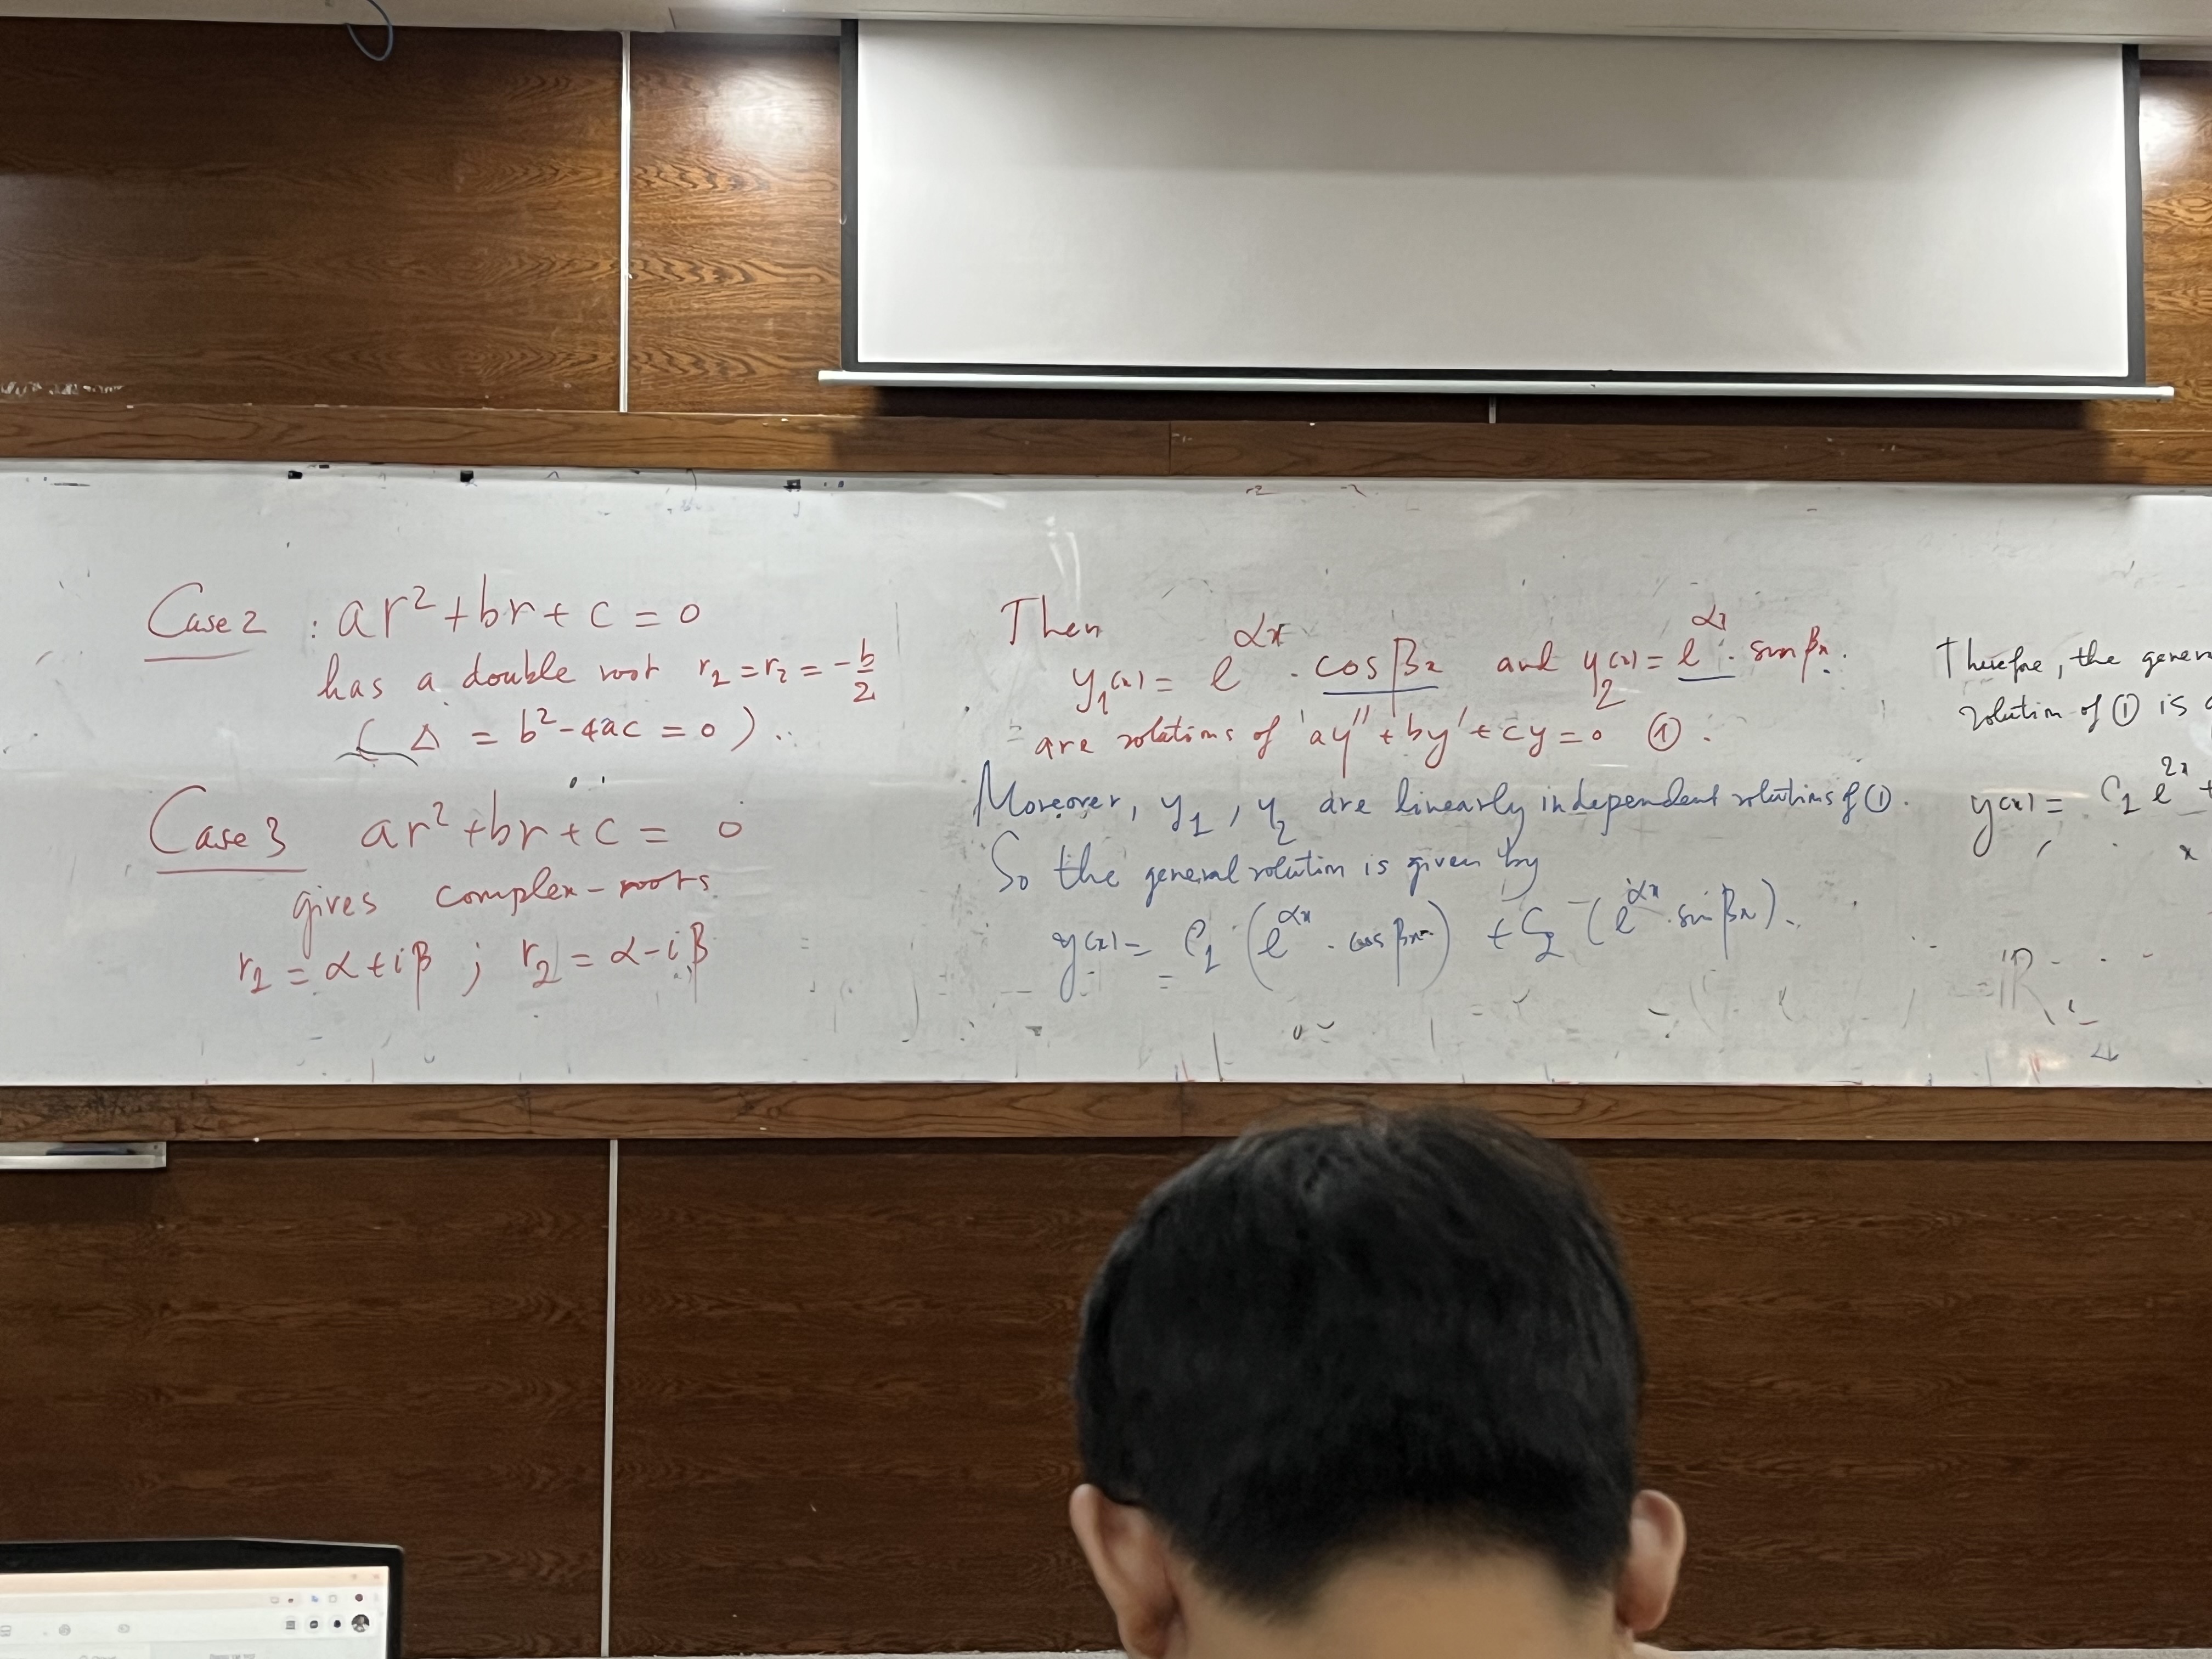 Case 2 : ar² + br + c = 0
has a double root r₁ = r₂ = -b/2
( Δ = b² - 4ac = 0 ).
Case 3 ar² + br + c = 0
gives complex-roots
r₁ = α + iβ ; r₂ = α - iβ
Then
y₁(x) = e^αx . cos βx and y₂(x) = e^αx . sin βx.
are solutions of ay'' + by' + cy = 0 ①.
Moreover, y₁, y₂ are linearly independent solutions of ①.
So the general solution is given by
y(x) = C₁ (e^αx . cos βx) + C₂ (e^αx . sin βx).
Therefore, the gener
solution of ① is
y(x) = C₁ e^2x +